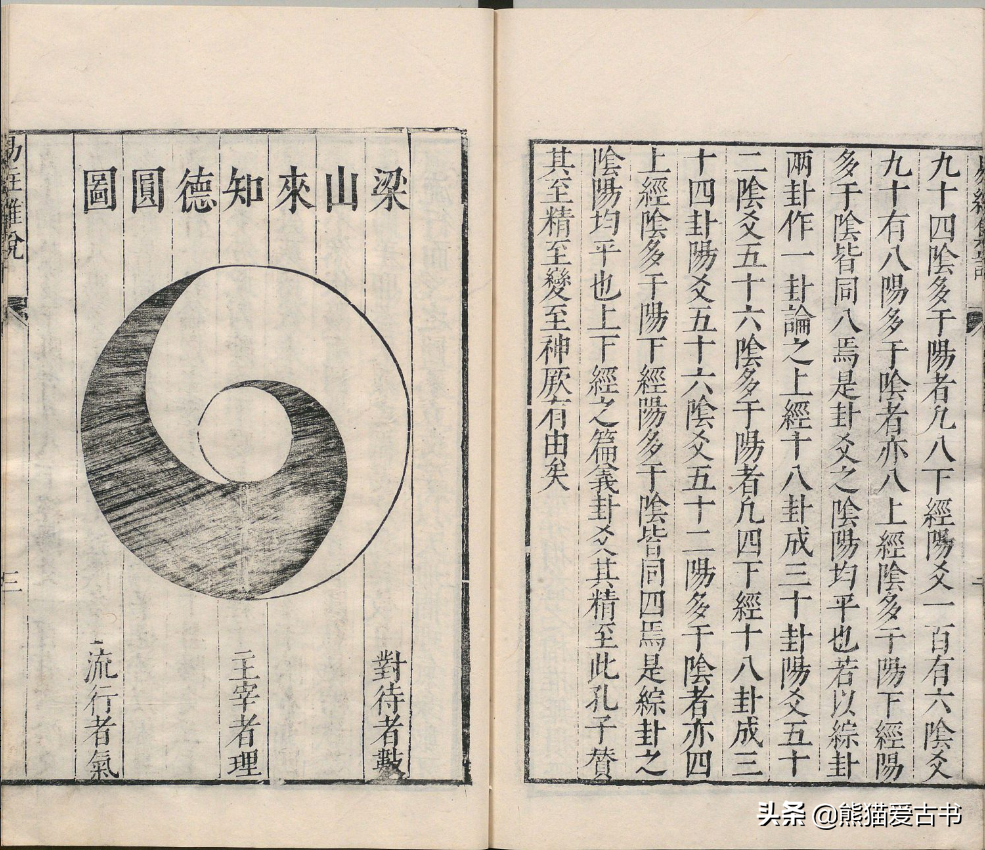 九十四陰多于陽者凡八下經陽爻一百有六陰爻
九十有八陽多于陰者亦八上經陰多于陽下經陽
多于陰皆同八焉是卦爻之陰陽均平也若以綜卦
兩卦作一卦論之上經十八卦成三十卦陽爻五十
二陰爻五十六陰多于陽者凡四下經十八卦成三
十四卦陽爻五十六陰爻五十二陽多于陰者亦四
上經陰多于陽下經陽多于陰皆同四焉是綜卦之
陰陽均平也上下經之篇義卦爻其精至此孔子贊
其至精至變至神厥有由矣
梁山來知德圓圖
對待者數
主宰者理
流行者氣
三
头条 @熊猫爱古书